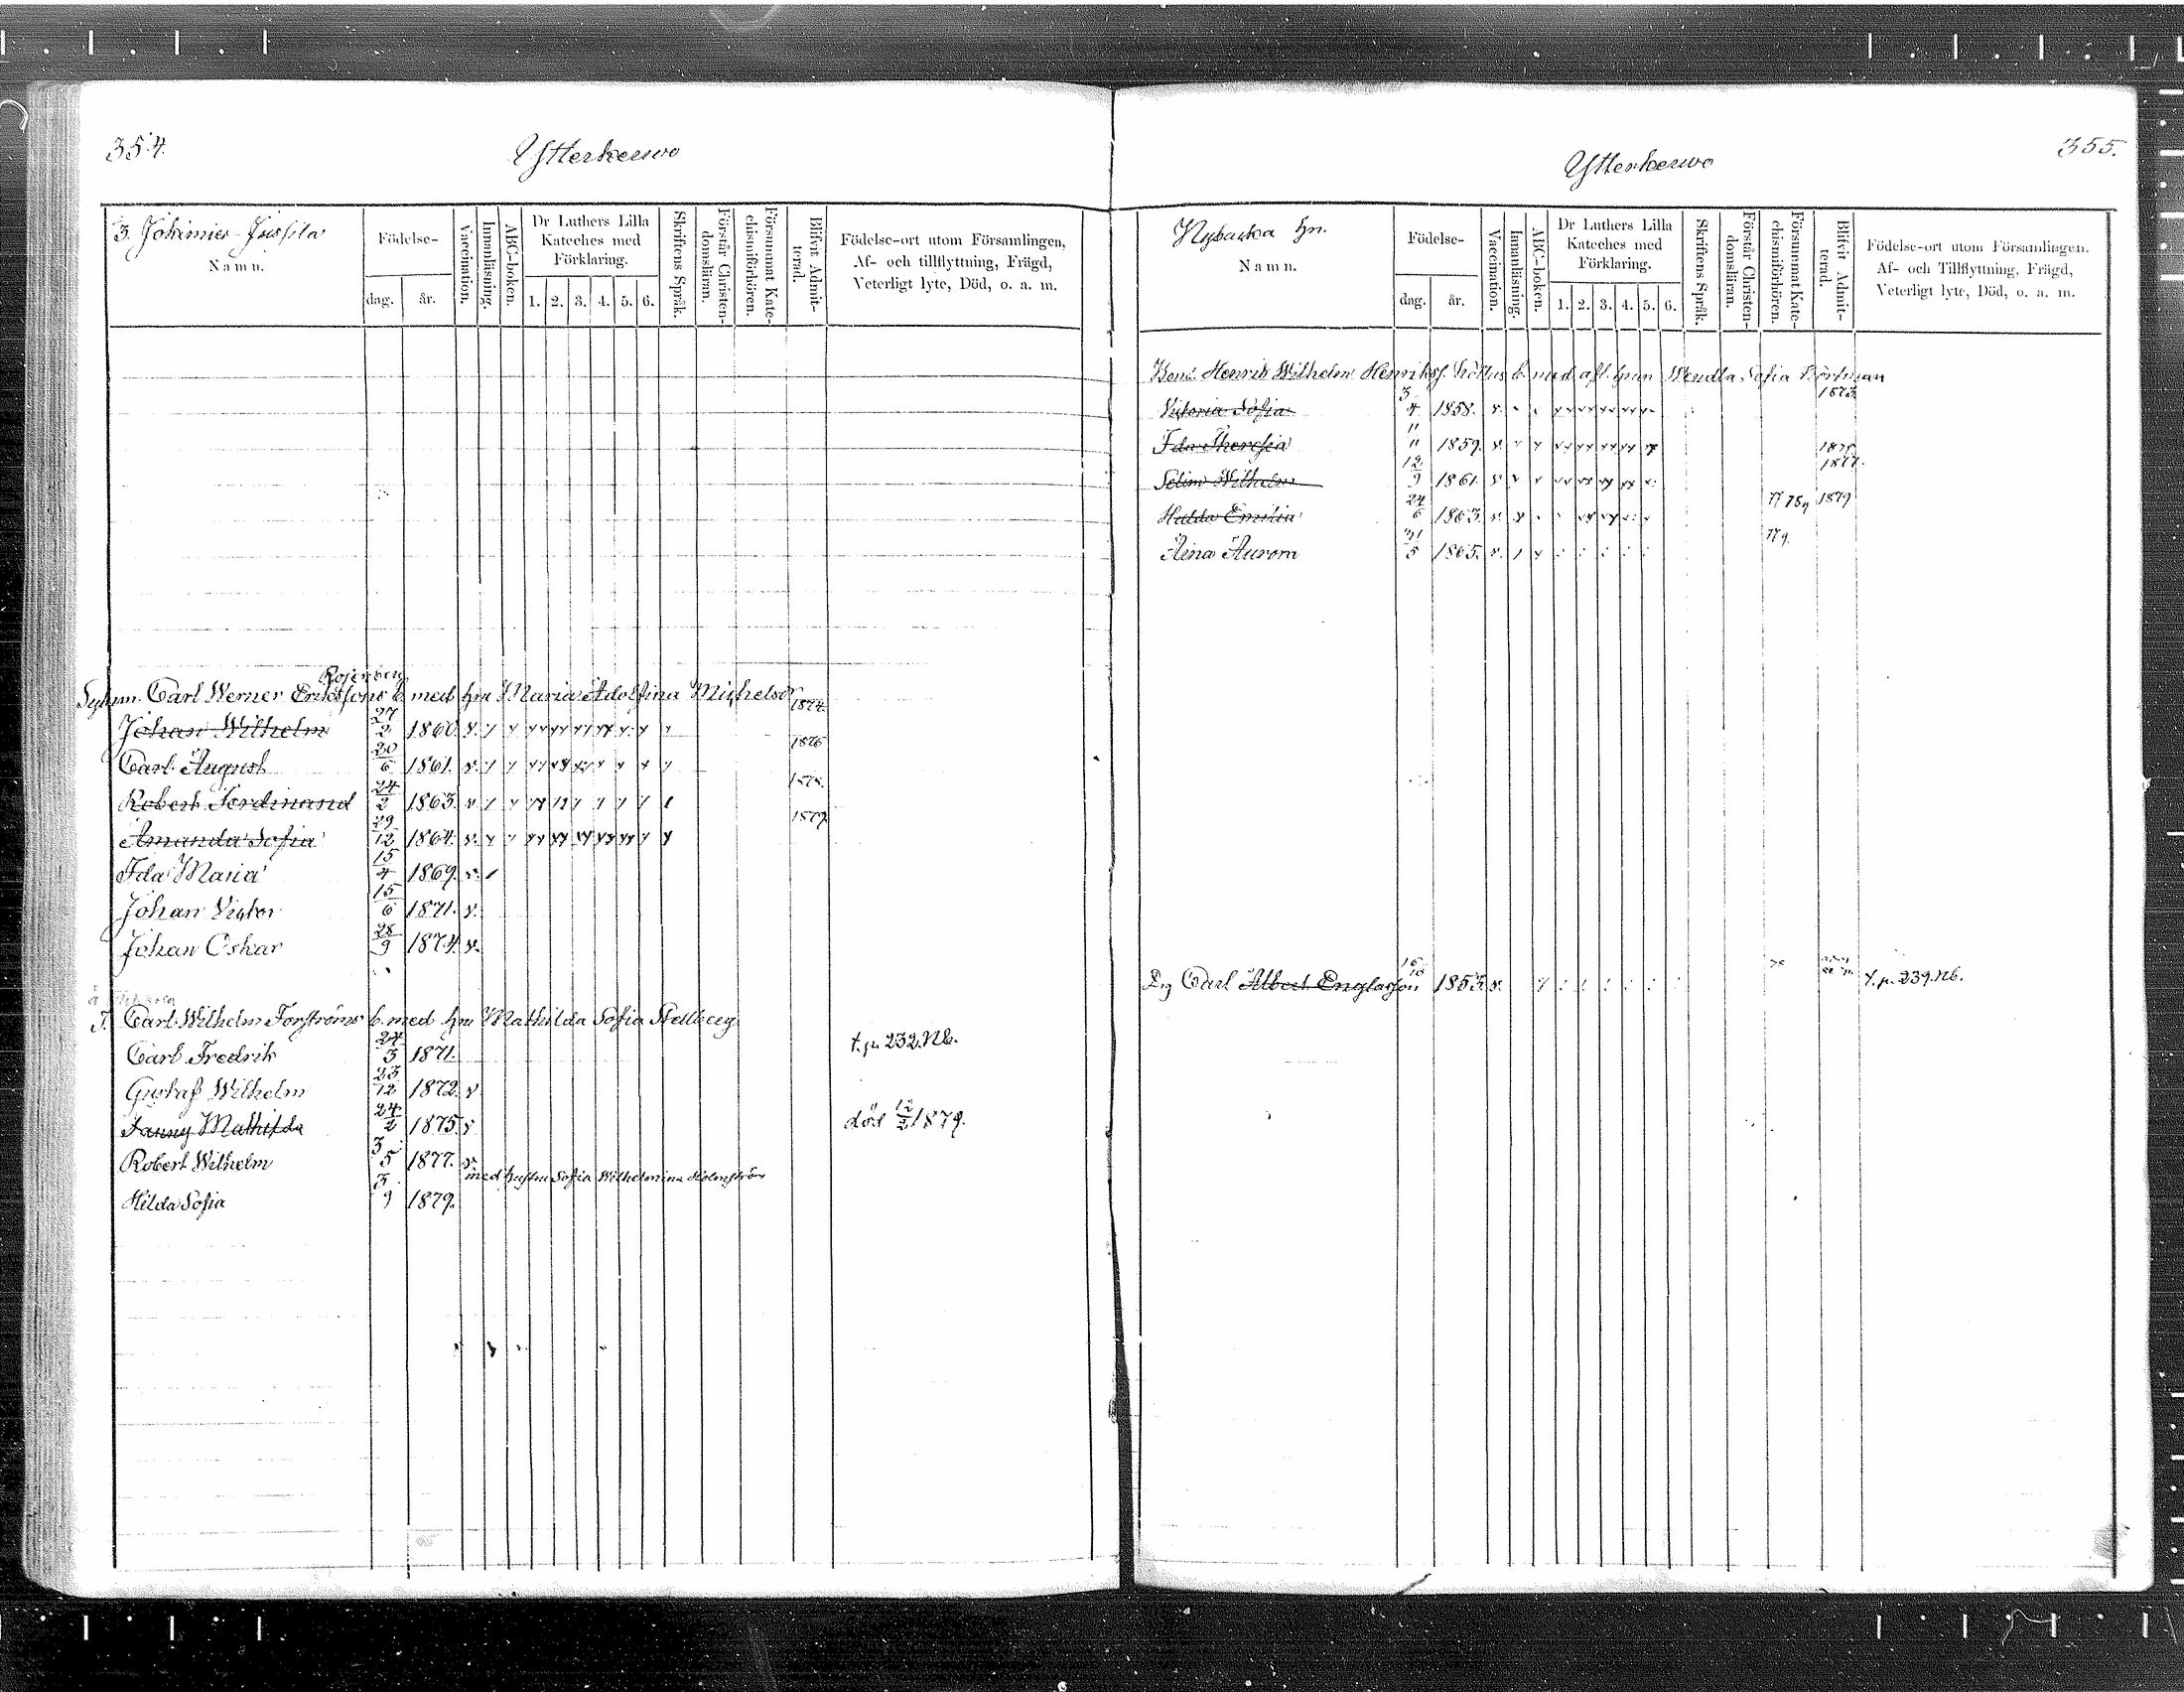 354.
Ytterkerwo
3. Johanies-Jussila
Namn.
Födelse-
dag.
år.
Vaccination.
Innanläsning.
ABC-boken.
Dr Luthers Lilla
Kateches med
Förklaring.
1. 2. 3. 4. 5. 6.
Skriftens Språk.
Förstår Christen-
domsläran.
Försummat Kate-
chismiförhören.
Blifvit Admit-
terad.
Födelse-ort utom Församlingen,
Af- och tillflyttning, Frägd,
Veterligt lyte, Död, o. a. m.
Carl Werner Erikssons b. med hu Maria Adolfina Michelsdr
Johan Wilhelm 27/2 1860. v. 1874.
Carl August 20/6 1861. v. 1876
Robert Ferdinand 24/2 1863. v. 1878.
Amanda Sofia 29/12 1864. v. 1879
Ida Maria 15/4 1869. v.
Johan Victor 15/6 1871. v.
Johan Oskar 28/9 1874. v.
Carl Wilhelm Forströms b. med hu Mathilda Sofia Stellberg
Carl Fredrik 24/3 1871. t. p. 232. Nb.
Gustaf Wilhelm 23/12 1872. v
Fanny Mathilda 24/2 1875. v död 12/2 1879.
Robert Wilhelm 3/5 1877. v.
med hustru Sofia Wilhelmina Holmström
Hilda Sofia 3/9 1879.
355.
Ytterkerwo
Nybacka hn.
Namn.
Födelse-
dag.
år.
Vaccination.
Innanläsning.
ABC-boken.
Dr Luthers Lilla
Kateches med
Förklaring.
1. 2. 3. 4. 5. 6.
Skriftens Språk.
Förstår Christen-
domsläran.
Försummat Kate-
chismiförhören.
Blifvit Admit-
terad.
Födelse-ort utom Församlingen.
Af- och Tillflyttning, Frägd,
Veterligt lyte, Död, o. a. m.
Henrik Wilhelm b. med Wendla Sofia
Victoria Sofia 3/4 1858. v. 1873
Ida Theresia 11/11 1859. v.
Selim Wilhelm 12/9 1861. v 1877.
Hulda Emilia 24/6 1863. v. 1879
Aina Aurora 21/5 1865. v.
Carl Albert Englasson 1853. v. t. p. 239. Nb.